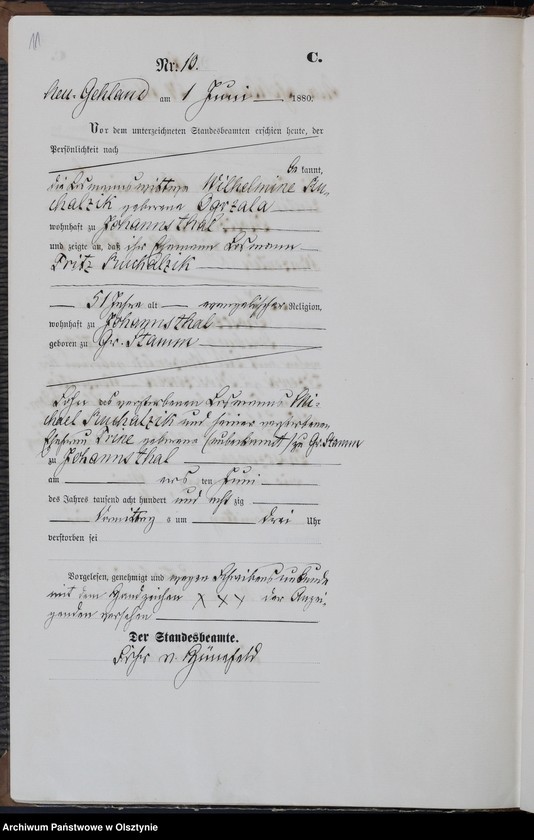 11
C.
Nr. 10.
Neu-Gehland am 1 Juni 1880.
Vor dem unterzeichneten Standesbeamten erschien heute, der
Persönlichkeit nach
be kannt,
die Losmannswittwe Wilhelmine Ru-
chalzik geborene Ogrzala
wohnhaft zu Johannsthal
und zeigte an, daß der Ehemann Losmann
Fritz Ruchalzik
51 Jahre alt evangelischer Religion,
wohnhaft zu Johannsthal
geboren zu Gr. Stamm
Sohn des verstorbenen Losmanns Mi-
chael Ruchalzik und seiner verstorbenen
Ehefrau Trine geborene (unbekannt) zu Gr. Stamm
zu Johannsthal
am ers ten Juni
des Jahres tausend acht hundert und acht zig
Vormittag s um drei Uhr
verstorben sei
Vorgelesen, genehmigt und wegen Schreibensunkunde
mit dem Handzeichen XXX der Anzei-
genden versehen
Der Standesbeamte.